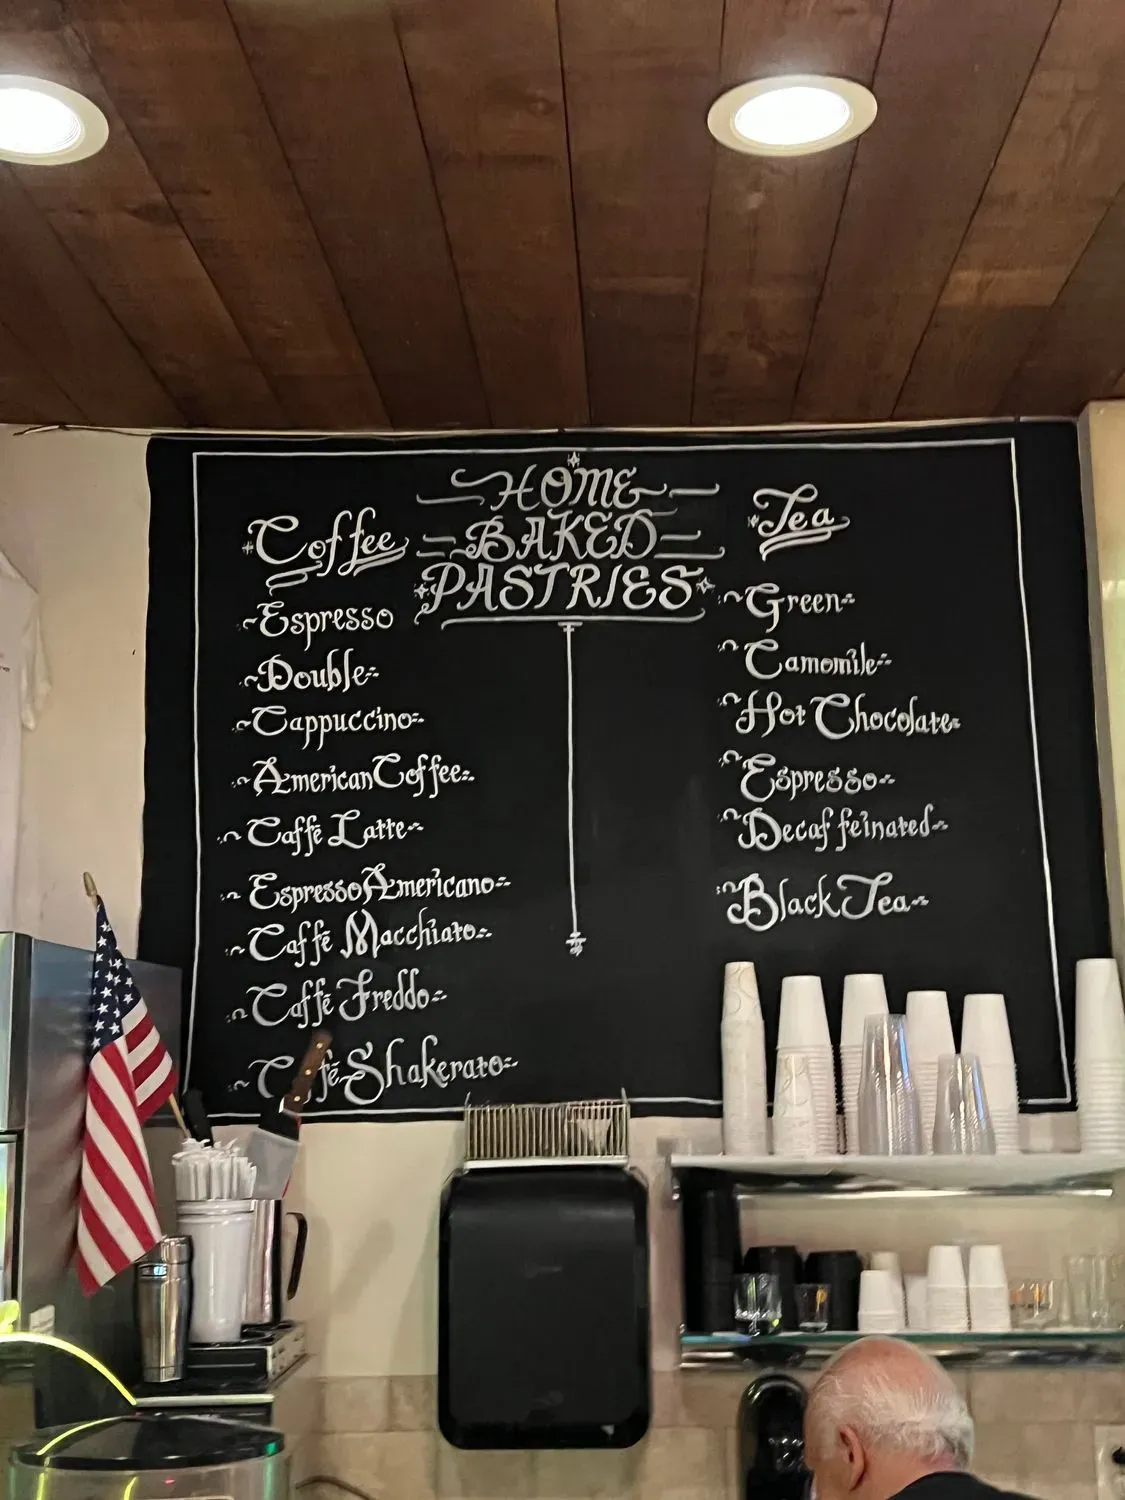 HOME
BAKED
PASTRIES
Coffee
Espresso
Double
Cappuccino
American Coffee
Caffē Latte
Espresso Americano
Caffē Macchiato
Caffē Freddo
Shakerato
Tea
Green
Camomile
Hot Chocolate
Espresso
Decaffeinated
Black Tea